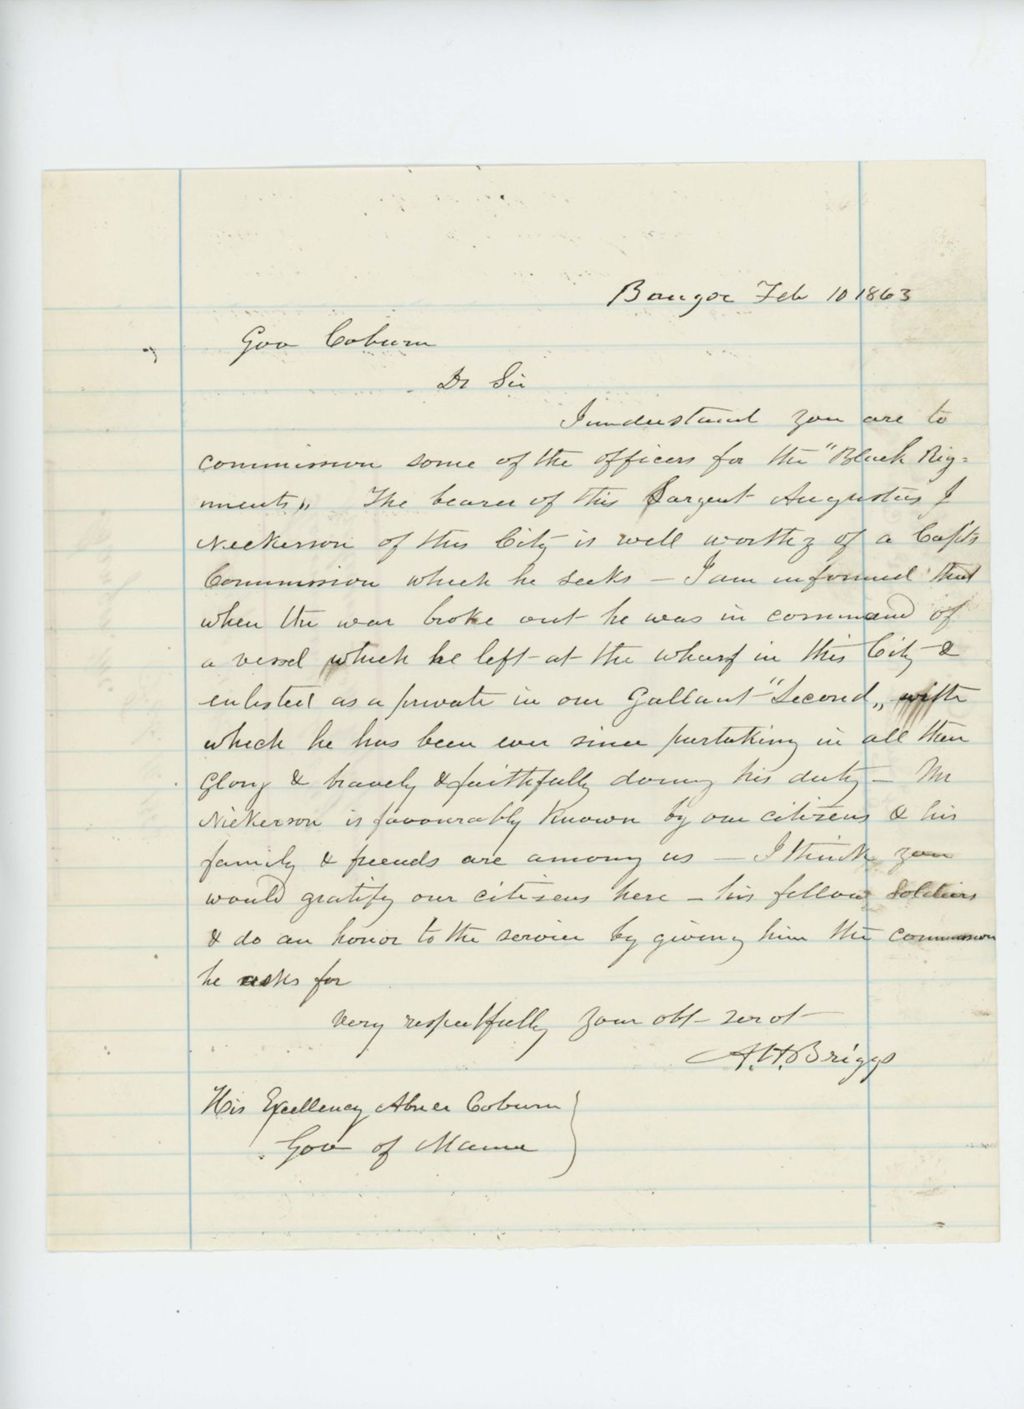 Bangor Feb 10 1863
Gov Coburn
Dr Sir
I understand you are to
commission some of the officers for the "Black Rig=
ments" The bearer of this Sargent Augustus J
Nickerson of this City is well worthy of a Capts
Commission which he seeks — I am informed that
when the war broke out he was in command of
a vessel which he left at the wharf in this City &
enlisted as a private in our Gallant "Second" with
which he has been ever since partaking in all their
Glory & bravely & faithfully doing his duty — Mr
Nickerson is favourably known by our citizens & his
family & friends are among us — I think you
would gratify our citizens here — his fellow Soldiers
& do an honor to the service by giving him the commission
he asks for
very respectfully your obt servt
A. H. Briggs
His Excellency Abner Coburn
Gov of Maine